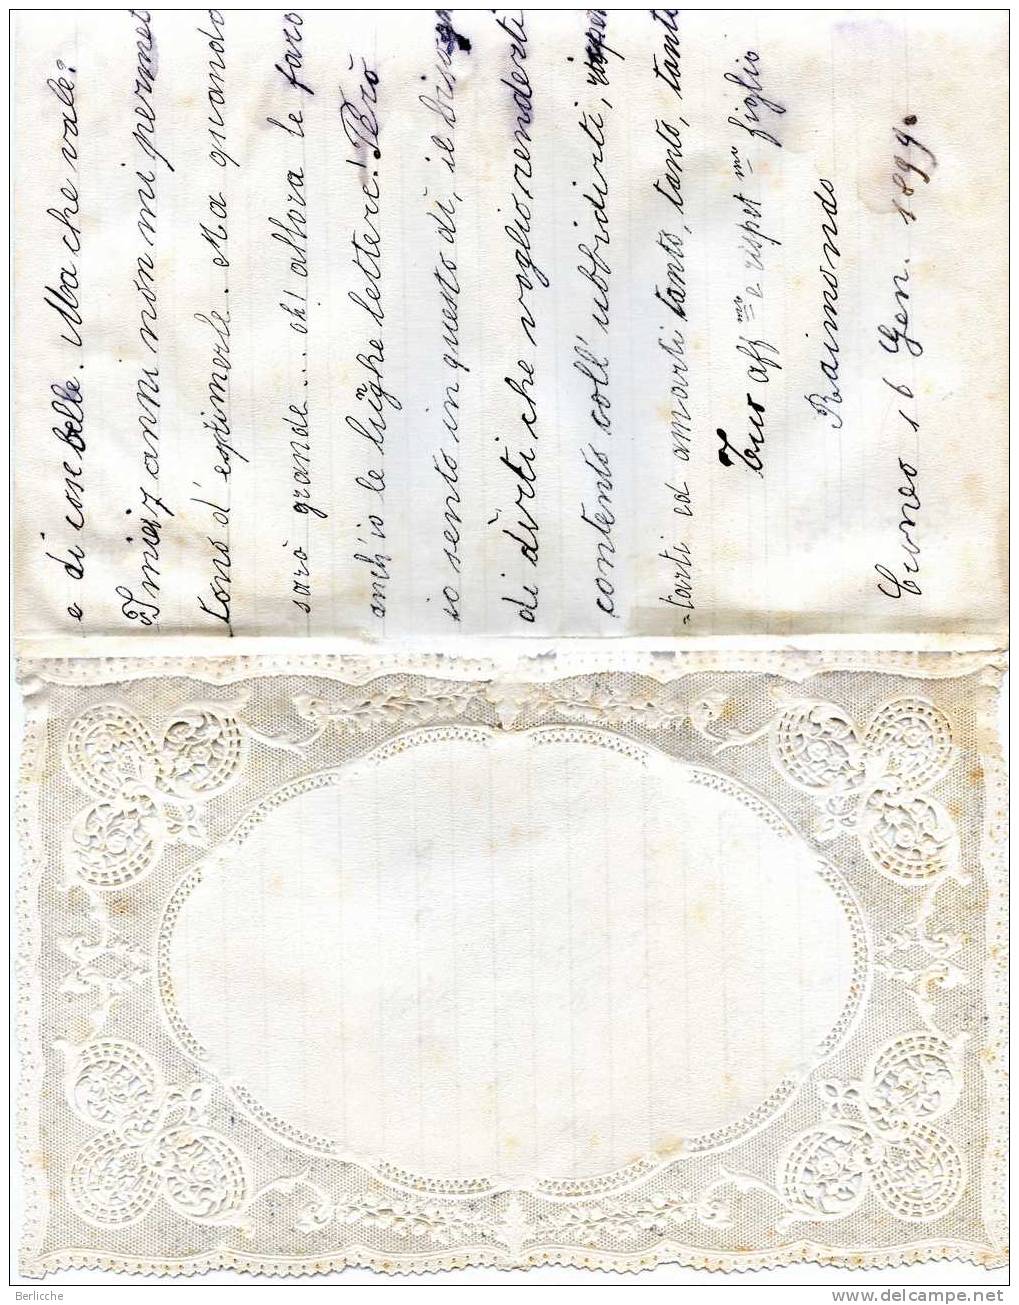 e di cose belle. Ma che vale?
I miei 7 anni non mi permet
tono d' esprimerle. Ma quando
sarò grande... oh! allora le farò
anch'io le lunghe lettere! Però
io sento in questo dì, il bisogn
di dirti che voglio renderti
contento coll' ubbidirti, rispet
=tarti ed amarti tanto, tanto, tanto, tanto
Tuo aff mo e rispet mo figlio
Raimondo
Cuneo 16 Gen. 1899.
Berlicche
www.delcampe.net